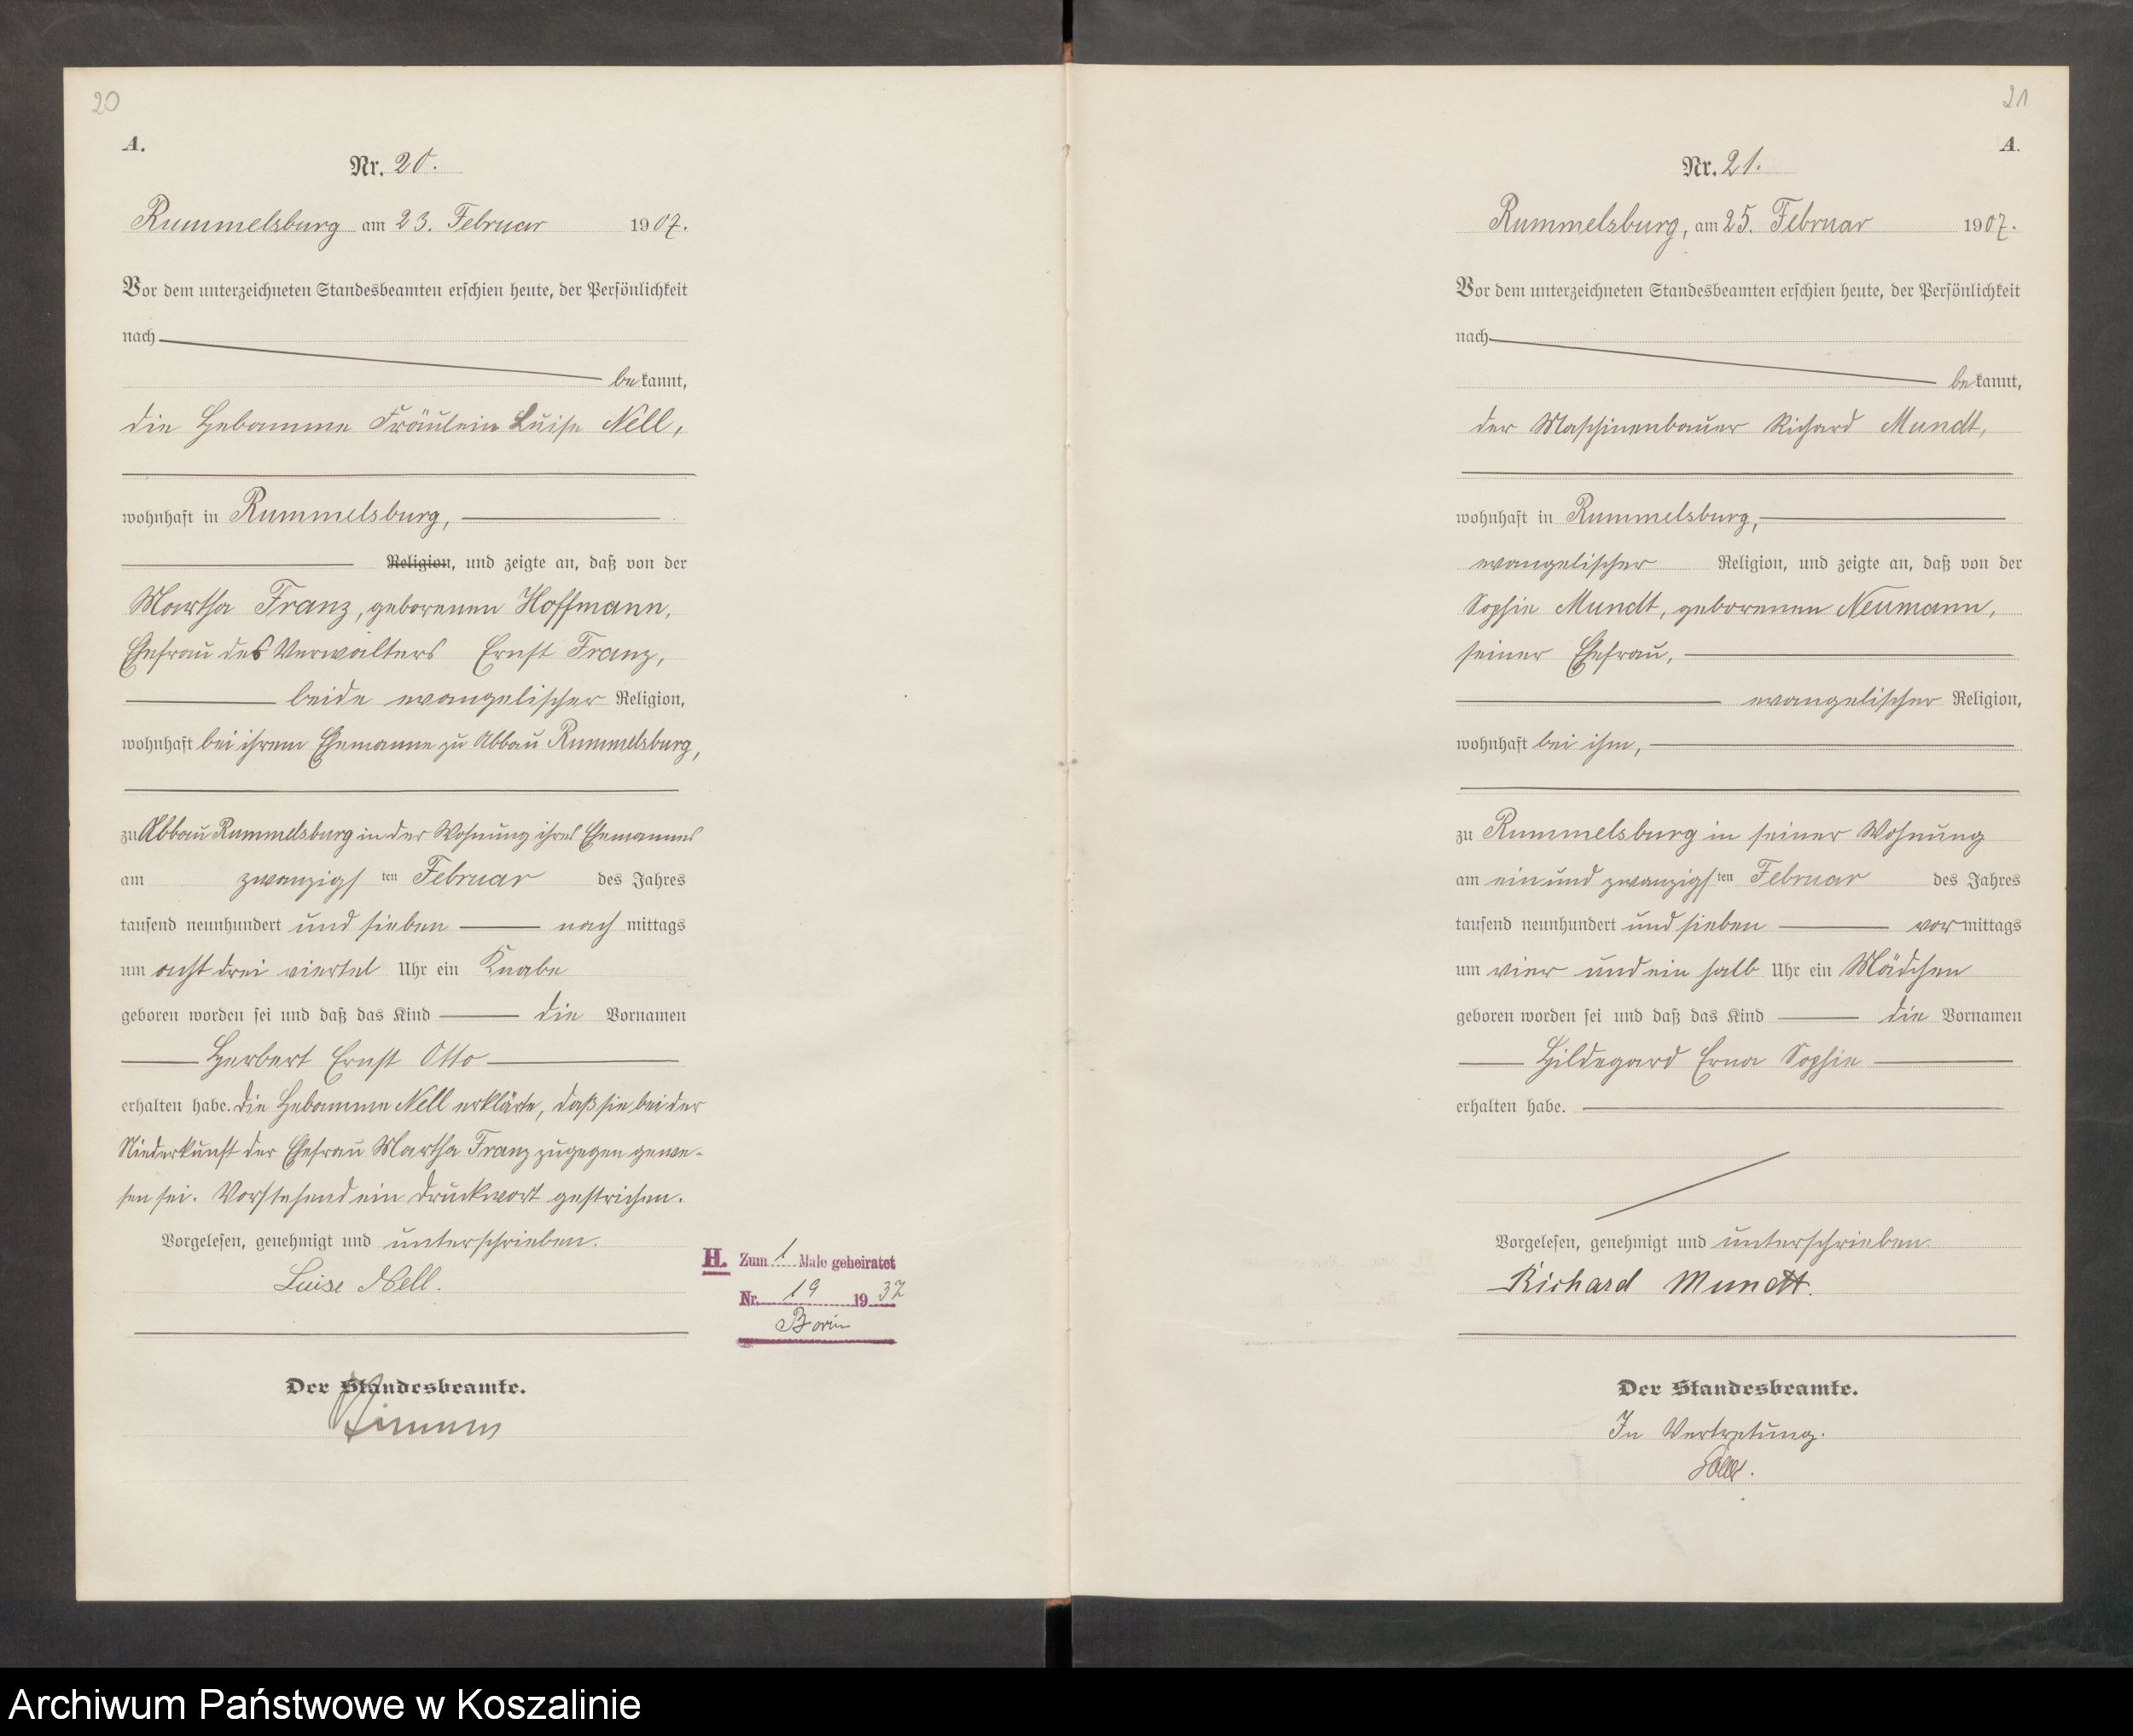 20
A.
Nr. 20.
Rummelsburg am 23. Februar 1907.
Vor dem unterzeichneten Standesbeamten erschien heute, der Persönlichkeit
nach
bekannt,
die Hebamme Fräulein Luise Nell,
wohnhaft in Rummelsburg,
Religion, und zeigte an, daß von der
Martha Franz, geborenen Hoffmann,
Ehefrau des Verwalters Ernst Franz,
beide evangelischer Religion,
wohnhaft bei ihrem Ehemanne zu Abbau Rummelsburg,
zu Abbau Rummelsburg in der Wohnung ihres Ehemannes
am zwanzigsten Februar des Jahres
tausend neunhundert und sieben nachmittags
um acht drei viertel Uhr ein Knabe
geboren worden sei und daß das Kind die Vornamen
Herbert Ernst Otto
erhalten habe. Die Hebamme Nell erklärte, daß sie bei der
Niederkunft der Ehefrau Martha Franz zugegen gewe-
sen sei. Vorstehend ein Druckwort gestrichen.
Vorgelesen, genehmigt und unterschrieben.
Luise Nell.
H. Zum 1 Male geheiratet
Nr. 19 1937
Der Standesbeamte.
21
A.
Nr. 21.
Rummelsburg, am 25. Februar 1907.
Vor dem unterzeichneten Standesbeamten erschien heute, der Persönlichkeit
nach
bekannt,
der Maschinenbauer Richard Mundt,
wohnhaft in Rummelsburg,
evangelischer Religion, und zeigte an, daß von der
Sophie Mundt, geborenen Neumann,
seiner Ehefrau,
evangelischer Religion,
wohnhaft bei ihm,
zu Rummelsburg in seiner Wohnung
am ein und zwanzigsten Februar des Jahres
tausend neunhundert und sieben vormittags
um vier und ein halb Uhr ein Mädchen
geboren worden sei und daß das Kind die Vornamen
Hildegard Erna Sophie
erhalten habe.
Vorgelesen, genehmigt und unterschrieben.
Richard Mundt.
Der Standesbeamte.
In Vertretung.
Archiwum Państwowe w Koszalinie